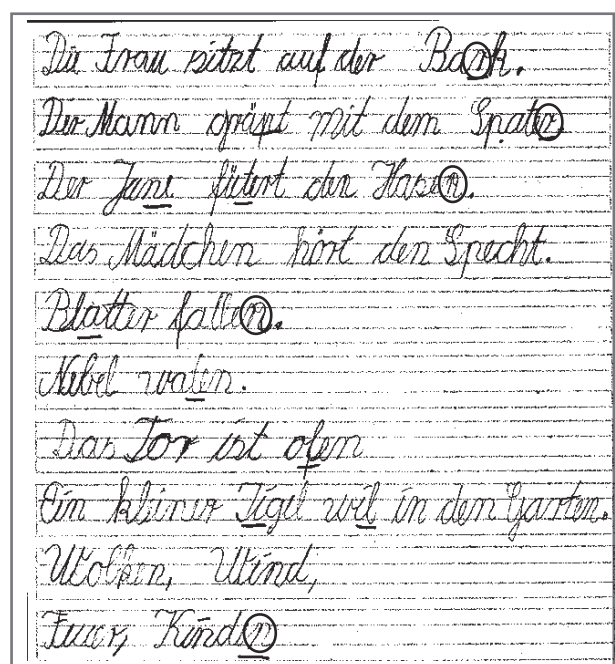 Die Frau sitzt auf der Bank.
Der Mann gräpt mit dem Spaten
Der Juni fütert den Hasen.
Das Mädchen hört den Specht.
Blatter fallen.
Nebel waten.
Das Tor ist ofen
Ein kleiner Tigel wil in den Garten.
Wolken, Wind,
Fuer, Kinden